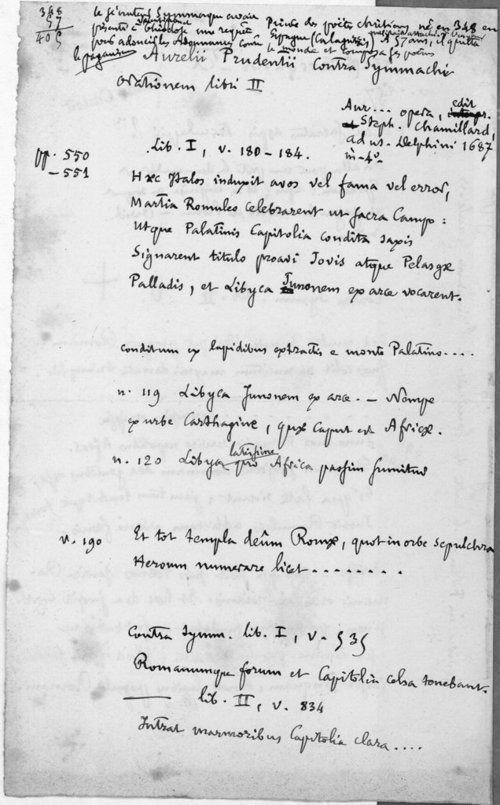 348
57
405
le sénateur Symmaque avait
présenté à Théodose une requête
pour
le paganisme
Prince des poëtes chrétiens né en 348 en
Espagne (Calagurris)
à 57 ans, il quitte
le monde et composa ses poëmes
Aurelii Prudentii contra Symmachi
orationem libri II
Aur... opera, edit
Steph. Chamillard,
ad us. Delphini 1687
in-4º.
pp. 550
-551
lib. I, v. 180-184.
Hæc Italos induxit avos vel fama vel error,
Martia Romuleo celebrarent ut sacra Campo:
Utque Palatinis Capitolia condita saxis
Signarent titulo proavi Jovis atque Pelasgæ
Palladis, et Libyca Junonem ex arce vocarent.
conditum ex lapidibus extractis e monte Palatino....
n. 119 Libyca Junonem ex arce. - Nempe
ex urbe Carthagine, quæ caput est Africæ.
n. 120 Libya pro Africa passim sumitur
latissime
v. 190
Et tot templa deûm Romæ, quot in orbe sepulchra
Heroum numerare licet ........
Contra Symm. lib. I, v. 535
Romanumque forum et Capitolia celsa tonebant.
lib. II, v. 834
Intrat marmoribus Capitolia clara....